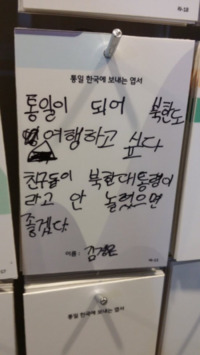 통일 한국에 보내는 엽서
통일이 되어 북한도
여행하고 싶다
친구들이 북한대통령이
라고 안 놀렸으면
좋겠다
이름: 김정은
통일 한국에 보내는 엽서